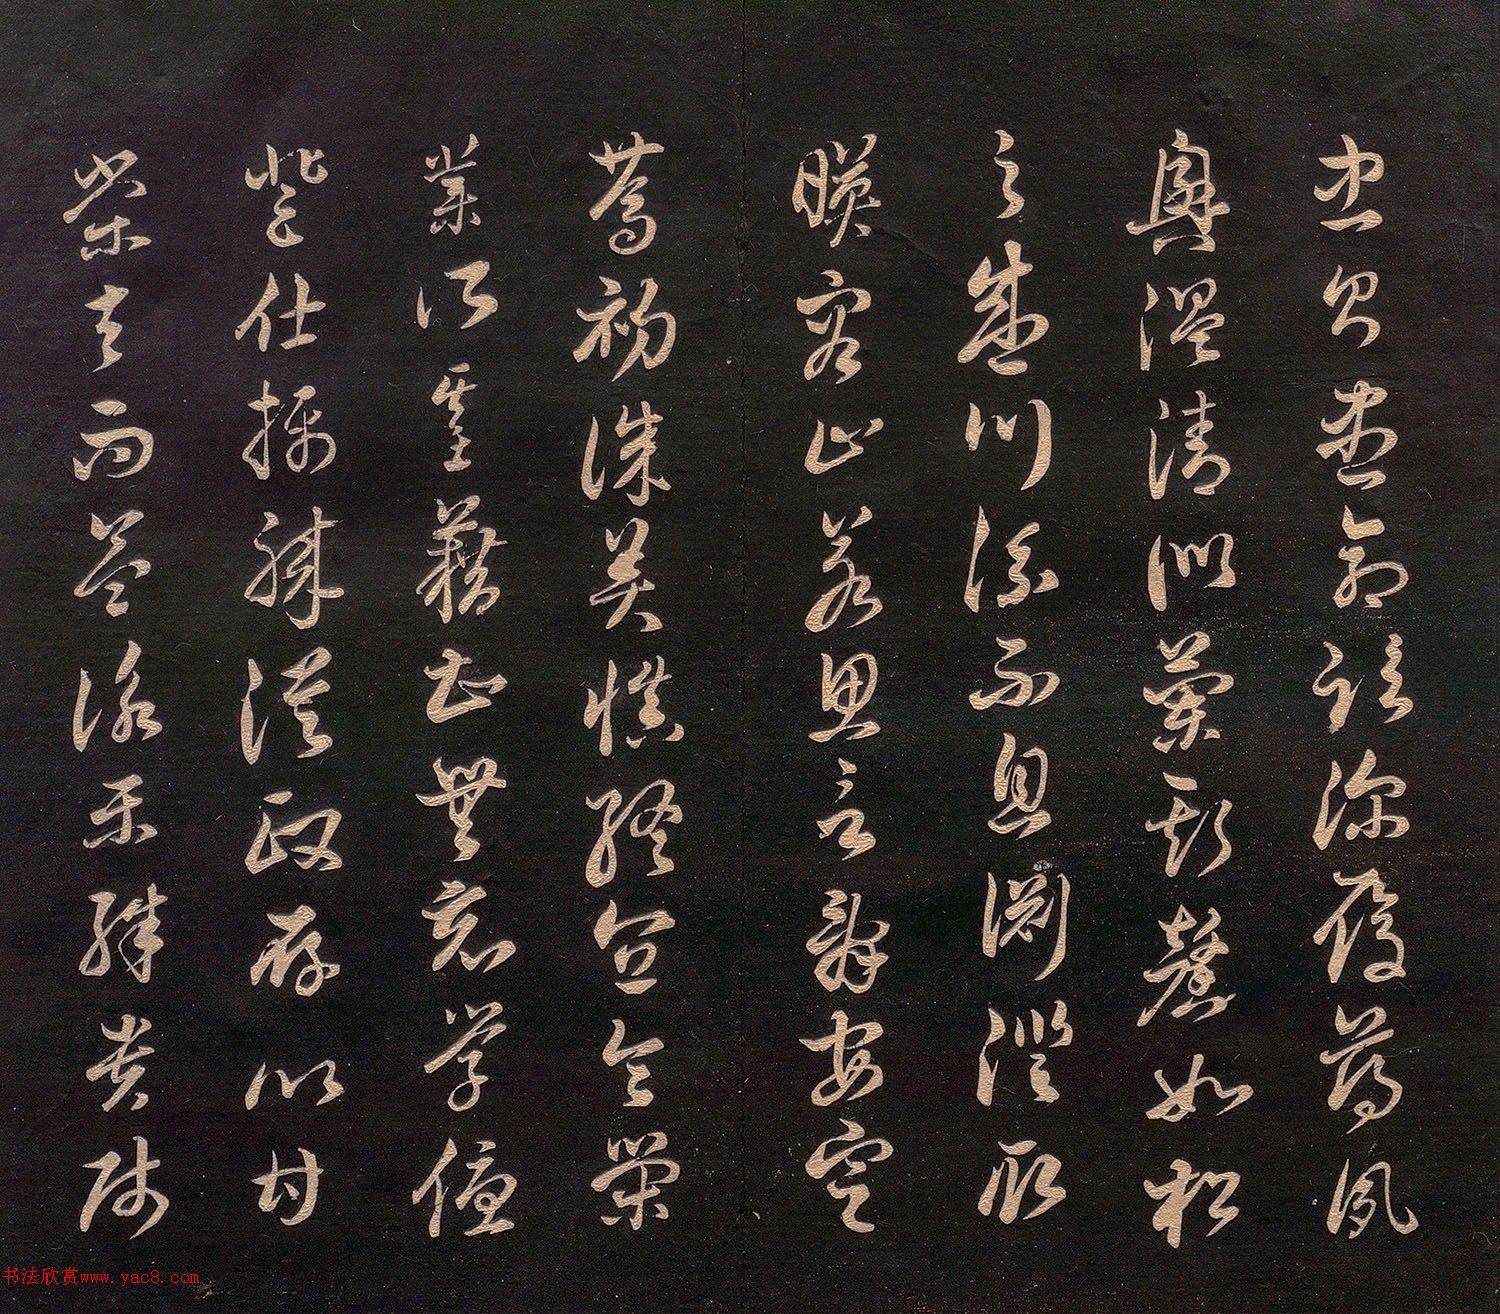 忠則盡命臨深履薄夙
興溫清似蘭斯馨如松
之盛川流不息淵澄取
暎容止若思言辭安定
篤初誠美慎終宜令榮
業所基藉甚無竟學優
登仕攝職從政存以甘
棠去而益詠樂殊貴賤
书法欣赏www.yac8.com